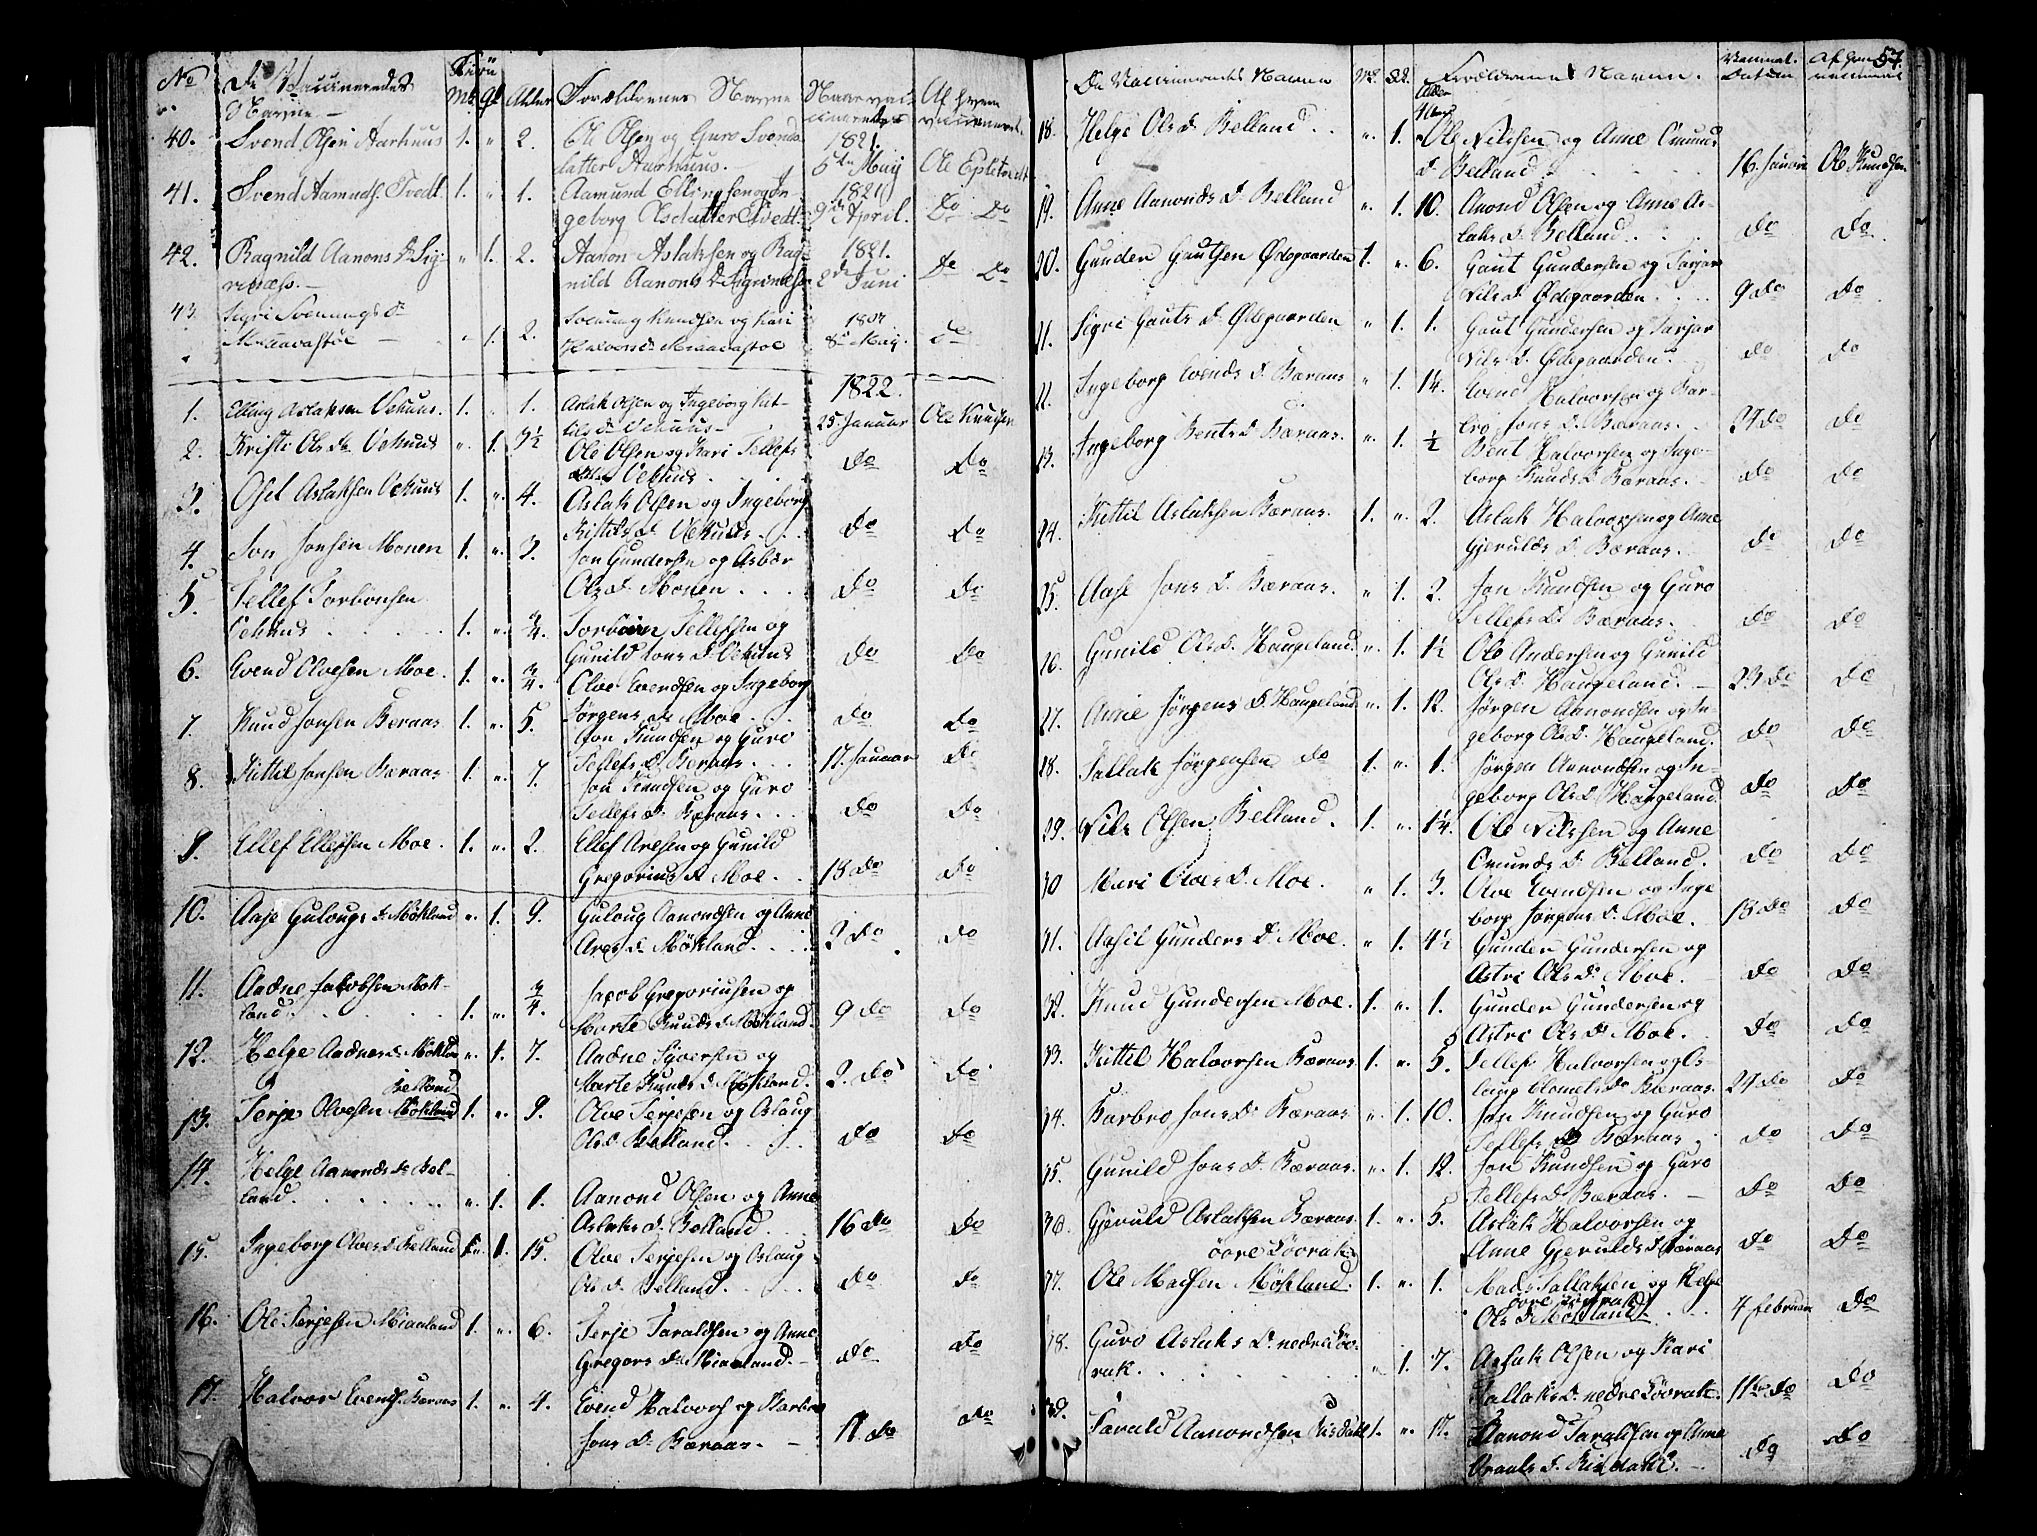 No De Vaccineredes Navne Mk. Qk. Alder Forældrenes Navne Naar vaccineredes Af hvem vaccineret
40. Svend Olsen Aarhuus 1. " 2. Ole Olsen og Guro Svends
datter Aarhuus. 1821. 5te Maij Ole Epletvedt
41. Svend Aamunds. Tvedt 1. " 1. Aamund Ellingsen og In-
geborg Olsdatter Tvedt. 1821 9de April. Do Do
42. Ragnild Aanons D. Sig- " 1. 2. Aanon Aslaksen og Rag-
nild Aanons D. 1821. 2de Juni Do Do
43. Sigri Svenungs D.
Miaavastøe " 1. 2. Svenung Knudsen og Kari
Halvors D. Miaavastøe 8de Maij. Do
1822.
1. Elling Aslaksen Vehuus. 1. " 1. Aslak Olsen og Ingeborg Kit-
tils D. Vehuus 25. Januar Ole Knudsen
2. Kristi Ols D. Vehuus " 1. 3½ Ole Olsen og Kari Tellefs
Vehuus Do Do
3. Osel Aslaksen Vehuus 1. " 4. Aslak Olsen og Ingeborg
Kittils D. Vehuus. Do Do
4. Jon Jonsen Monen 1. " 3. Jon Gundersen og Asbør
Ols D. Monen Do Do
5. Tellef Torbonsen
Vehuus 1. " ¾. Torbørn Tellefsen og
Gunild Jons D. Vehuus Do Do
6. Evend Olvesen Moe. 1. " ¾. Olve Evendsen og Ingeborg
Jørgens D. Moe Do Do
7. Knud Jonsen Beraas 1. " 5. Jon Knudsen og Guro
Tellefs D. Beraas 17. Januar Do
8. Kittil Jonsen Bæraas 1. " 7. Jon Knudsen og Guro
Tellefs D. Bæraas Do Do
9. Ellef Ellefsen Moe. 1. " 2. Ellef Aresen og Gunild
Gregorius D. Moe. 18 Do Do
10. Aase Gulougs D. Møkland " 1. 9. Guloug Aamondsen og Anne
Ares D. Møkland. 2 Do Do
11. Aadne Jakobsen Møk-
land. 1. " ¾. Jacob Gregoriusen og
Marte Knuds D. Møkland. 9 Do Do
12. Helge Aadnes D. Møkland " 1. 7. Aadne Syversen og
Marte Knuds D. Møkland. 2. Do Do
Belland
13. Terje Olvesen Møkland 1. " 9. Olve Terjesen og Aslaug
Ols D. Belland. Do Do
14. Helge Aanonds D. Bel-
land. " 1. 1. Aanond Olsen og Anne
Aslaks D. Belland 16 Do Do
15. Ingeborg Olves D. Belland " 1. 15. Olve Terjesen og Aslaug
Ols D. Belland. Do Do
16. Ole Terjesen Miaaland 1. " 6. Terje Taraldsen og Anne
Gregors D. Miaaland. Do Do
17. Halvor Evends. Bæraas 1. " 4. Evend Halvors. og Barbro
Jons D. Bæraas. 17. Do Do
57.
De Vaccineredes Navne Mk. Qk. Alder Forældrenes Navne. Vaccinat. Datum Af hvem vaccineret
18. Helge Ols D. Belland " 1. Ole Nilssen og Anne Omunds
D. Belland 16. Januar Ole Knudsen
19. Anne Aanonds D. Belland " 1. 10. Anond Olsen og Anne As-
laks D. Belland. Do Do
20. Gunder Gautsen Ødegaarden 1. " 6. Gaut Gundersen og Tarjer
Nils D. Ødegaarden 9 Do Do
21. Sigri Gauts D. Ødegaarden " 1. 1. Gaut Gundersen og Tarjer
Nils D. Ødegaarden. Do Do
22. Ingeborg Evends D. Bæraas " 1. 14. Evend Halvorsen og Bar-
bro Jons D. Bæraas. 27 Do Do
23. Ingeborg Bents D. Bæraas. " 1. ½ Bent Halvorsen og Inge-
borg Knuds D. Bæraas. Do Do
24. Kittil Aslaksen Bæraas. 1. " 2. Aslak Halvorsen og Anne
Gjerulds D. Bæraas. Do Do
25. Aase Jons D. Bæraas. " 1. 2. Jon Knudsen og Guro
Tellefs D. Bæraas. Do Do
26. Gunild Ols D. Haugeland. " 1. 1½ Ole Andersen og Gunild
Ols D. Haugeland. 23 Do Do
27. Anne Jørgens D. Haugeland " 1. 12. Jørgen Aanondsen og In-
geborg Ols D. Haugeland. Do Do
28. Tallak Jørgensen Do 1. " 1. Jørgen Aanondsen og In-
geborg Ols D. Haugeland. Do Do
29. Nils Olsen Belland. 1. " 14. Ole Nilssen og Anne
Omunds D. Belland. Do Do
30 Mari Olves D. Moe. " 1. 3. Olve Evendsen og Inge
borg Jørgens D. Moe. 18 Do Do
31. Aasil Gunders D. Moe. " 1. 4½ Gunder Gundersen og
Astri Ols D. Moe. Do Do
32. Knud Gundersen Moe. 1. " 1. Gunder Gundersen og
Astri Ols D. Moe. Do Do
33. Kittel Halvorsen Bæraas 1. " 5. Halvorsen og As-
laug D. Bæraas. 27 Do Do
34. Barbro Jons D. Bæraas " 1. 10. Jon Knudsen og Guro
Tellefs D. Bæraas Do Do
35. Gunild Jons D. Bæraas. " 1. 12. Jon Knudsen og Guro
Tellefs D. Bæraas. Do Do
36. Gjeruld Aslaksen Bæraas 1. " 5. Aslak Halvorsen og
Anne Gjerulds D. Bæraas Do Do
øvre Løvrak
37. Ole Madsen Møkland. 1. " 1. Mads Tallaksen og Helge
øvre Løvrak
Ols D. Møkland 4 Februar Do
38. Guro Aslaks D. nedre Løv-
rak. " 1. 7. Aslak Olsen og Kari
Tallaks D. nedre Løvrak. 11te Do Do
39. Tarald Aanondsen Risdahl 1. " 17. Aanond Taraldsen og Anne
D. Risdahl. Do Do